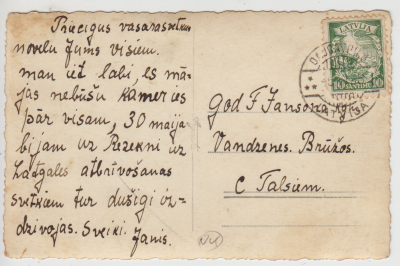 Priecigus vasarassvētkus
novēlu Jums visiem.
man iet labi, es mā-
jas nebūšu kamēr ies
pār visam, 30 maijā
bijam uz Rēzekni uz
Latgales atbrīvošanas
svētkiem tur dušigi
dzivojas. Sveiki. Janis.
LATVIJA
10 10
SANTIMI
LATVIJA
God F Jansona kg.
Vandzenes. Brūžos.
C Talsiem.